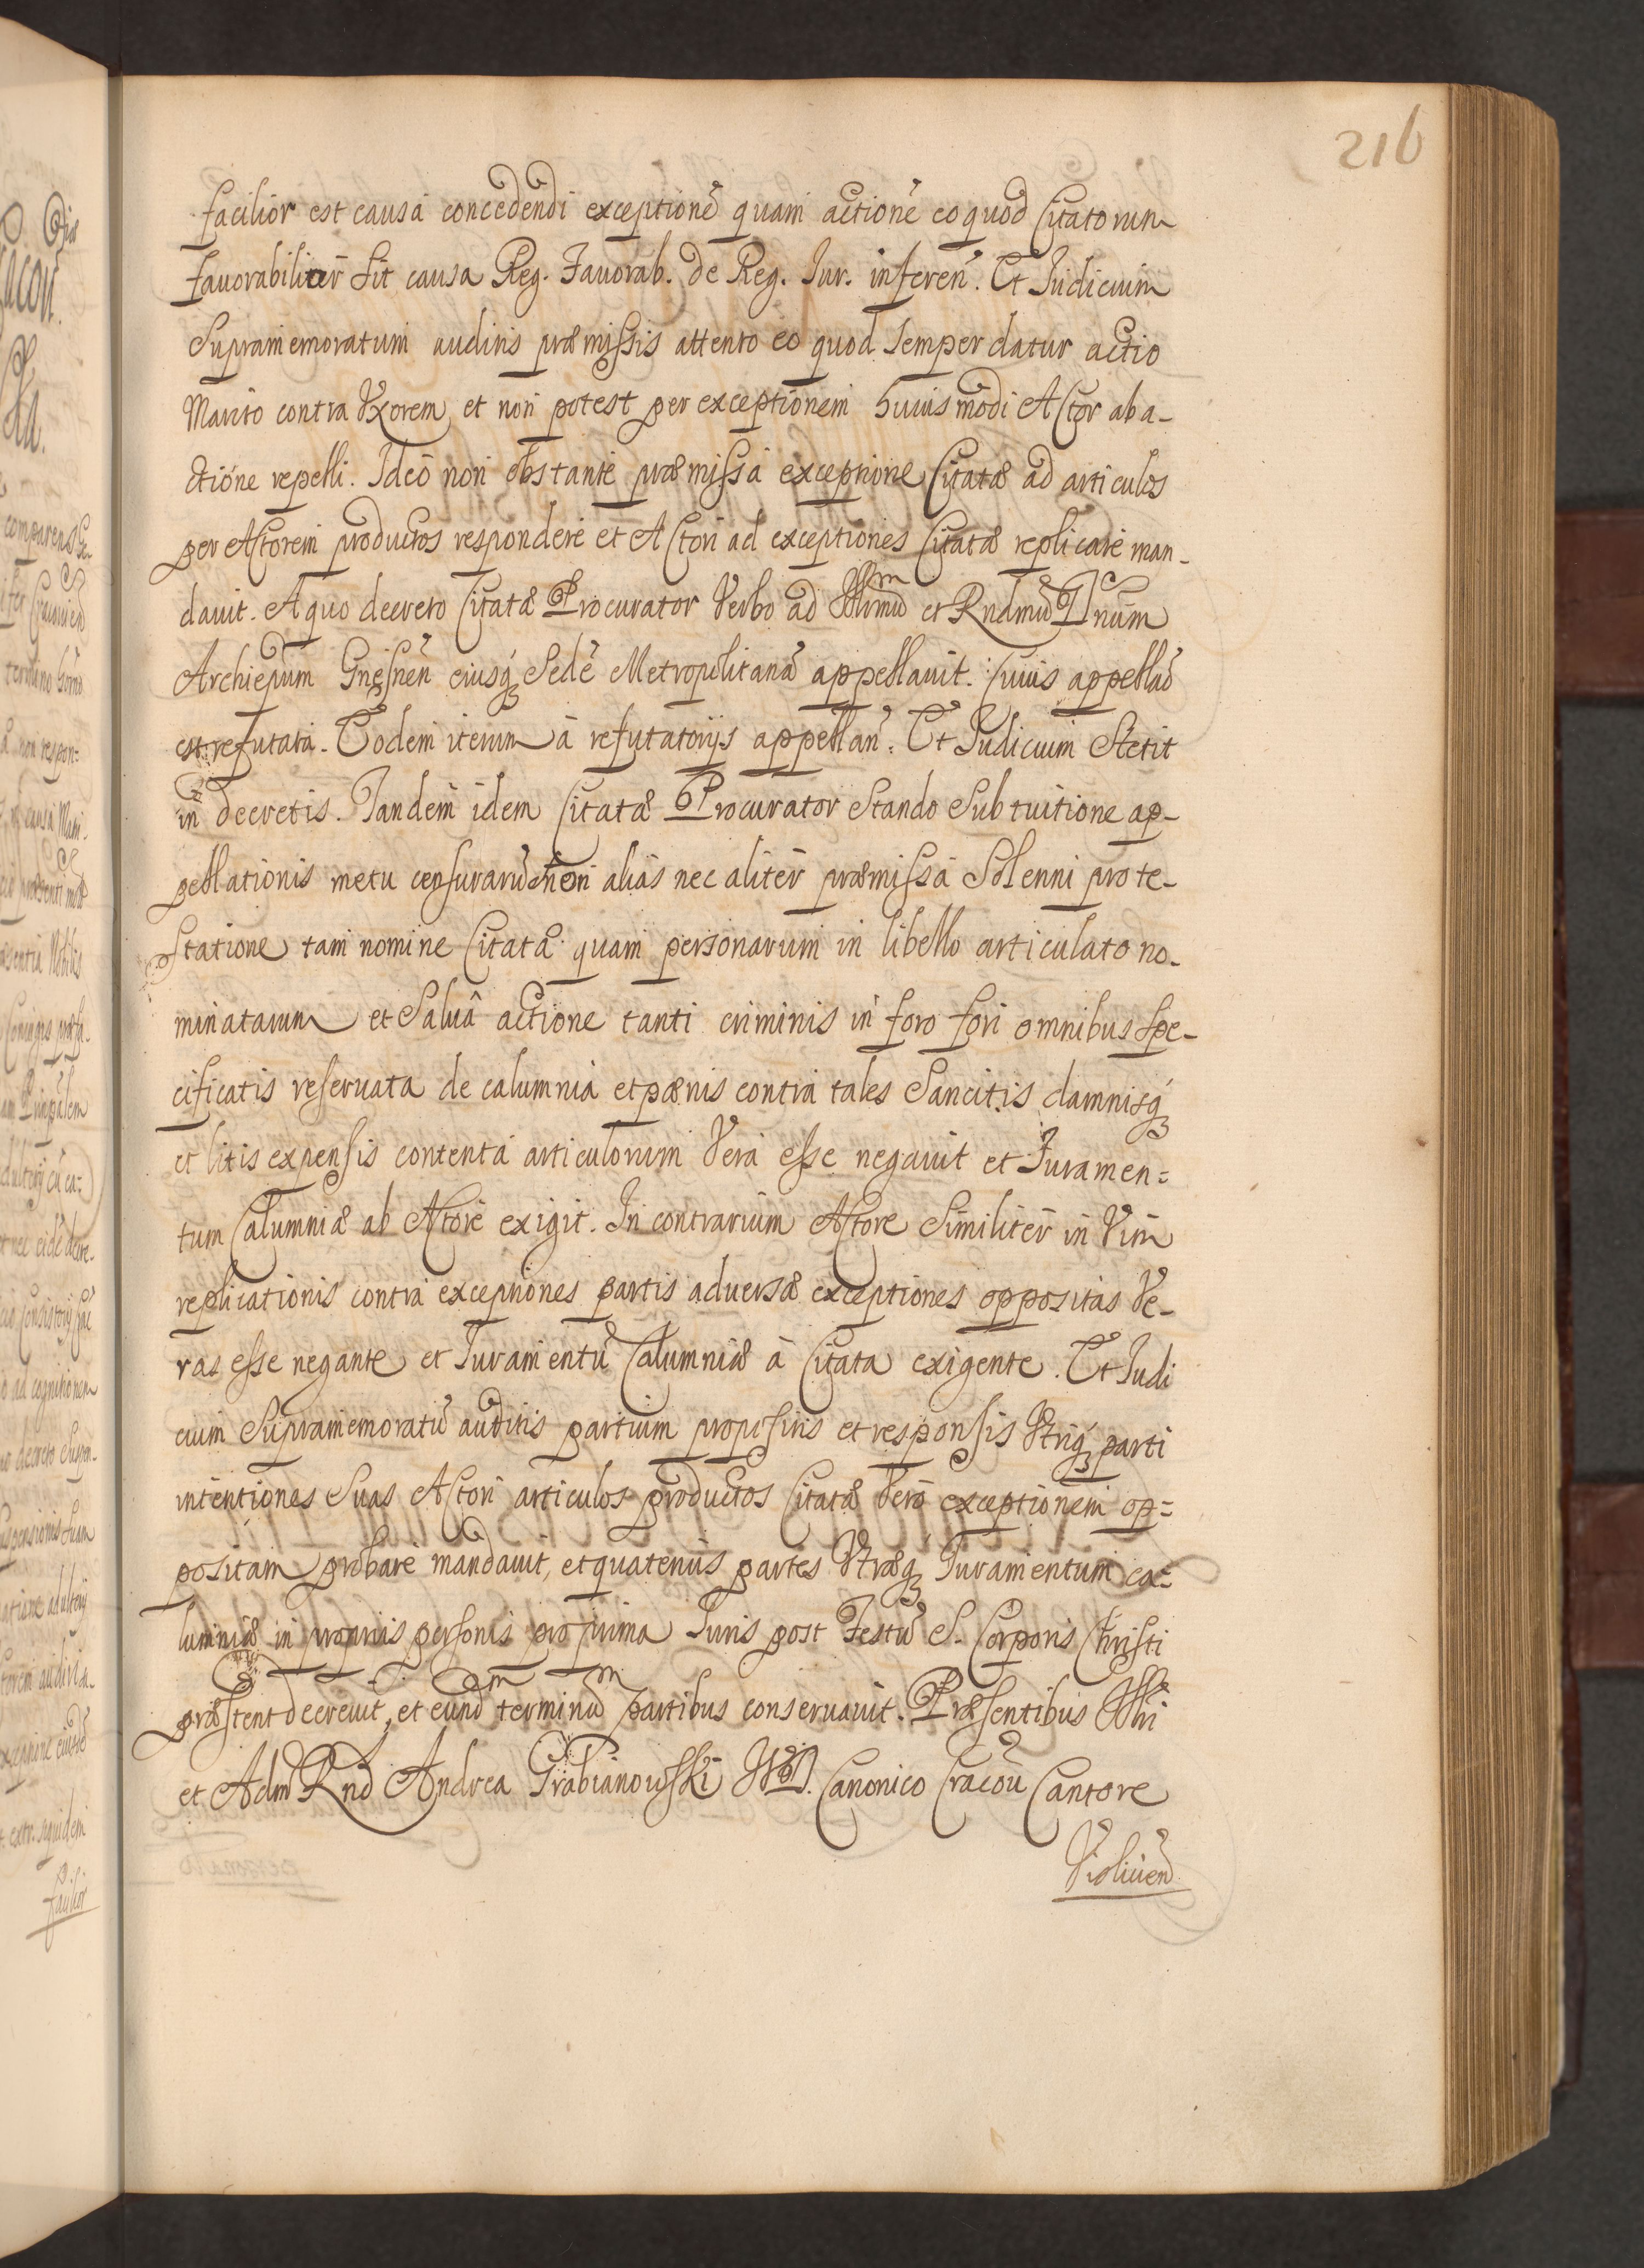 216
facilior est causa concedendi exceptionē quam actionē eo quod Citatorum
fauorabilior sit causa Reg. Fauorab. de Reg. Iur. inferen̄. Et Iudicium
Supramemoratum auditis præmissis attento eo quod semper datur actio
Marito contra Uxorem et non potest per exceptionem huiusmodi Actor ab a-
ctione repelli. Ideo non obstante præmissa exceptione Citatæ ad articulos
per Actorem productos respondere et Actori ad exceptiones Citatæ replicare man-
dauit. A quo decreto Citatæ Procurator Verbo ad Illrmū et Rndmū Dnūm
Archiepūm Gnesnēn eiusq Sedē Metropolitanā appellauit. Cuius appellaō
est refutata. Eodem iterum à refutatorijs appellan̄. Et Iudicium Stetit
in decretis. Tandem idem Citatæ Procurator Stando Sub tuitione ap-
pellationis metu censurarū non alias nec aliter præmissa Solenni prote-
statione tam nomine Citatæ quam personarum in libello articulato no-
minatarum et Saluâ actione tanti criminis in foro fori omnibus spe-
cificatis reseruata de calumnia et pœnis contra tales Sancitis damnisq
et litis expensis contenta articulorum Vera esse negauit et Iuramen=
tum Calumniæ ab Actore exigit. In contrarium Actore Similiter in Vim
replicationis contra exceptiones partis aduersæ exceptiones oppositas Ve-
ras esse negante et Iuramentū Calumniæ à Citata exigente. Et Iudi
cium Supramemoratū auditis partium propositis et responsis Utriq parti
intentiones Suas Actori articulos productos Citatæ Vero exceptionem op=
positam probare mandauit, et quatenus partes Utræq Iuramentum ca=
lumniæ in proprijs personis pro prima Iuris post Festū S. Corporis Christi
præstent decreuit, et eund̄m terminūm partibus conseruauit. Præsentibus Illri
et Adm̄ Rnd̄ Andrea Grabianowski IVD. Canonico Cracou̅ Cantore
Visliciēn